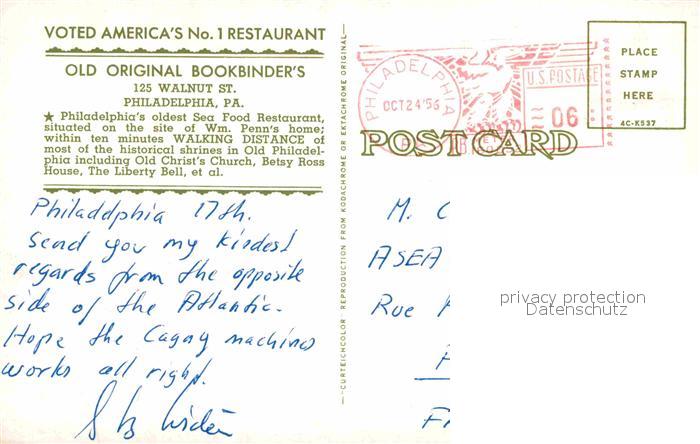 VOTED AMERICA'S No. 1 RESTAURANT
OLD ORIGINAL BOOKBINDER'S
125 WALNUT ST.
PHILADELPHIA, PA.
★ Philadelphia's oldest Sea Food Restaurant,
situated on the site of Wm. Penn's home;
within ten minutes WALKING DISTANCE of
most of the historical shrines in Old Philadel-
phia including Old Christ's Church, Betsy Ross
House, The Liberty Bell, et al.
Philadelphia 17th.
Send you my kindest
regards from the opposite
side of the Atlantic.
Hope the Cagny machines
works all right.
CURTEICHCOLOR REPRODUCTION FROM KODACHROME OR EKTACHROME ORIGINAL
PHILADELPHIA
OCT 24 '56
PA
U.S. POSTAGE
06
PLACE
STAMP
HERE
4C-K537
POST CARD
M. C
ASEA
Rue
privacy protection
Datenschutz